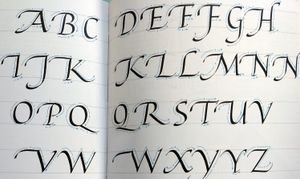 A B C D E F F G H
I J K K L L M N N
O P Q Q R S T U V
V W W X Y Y Z